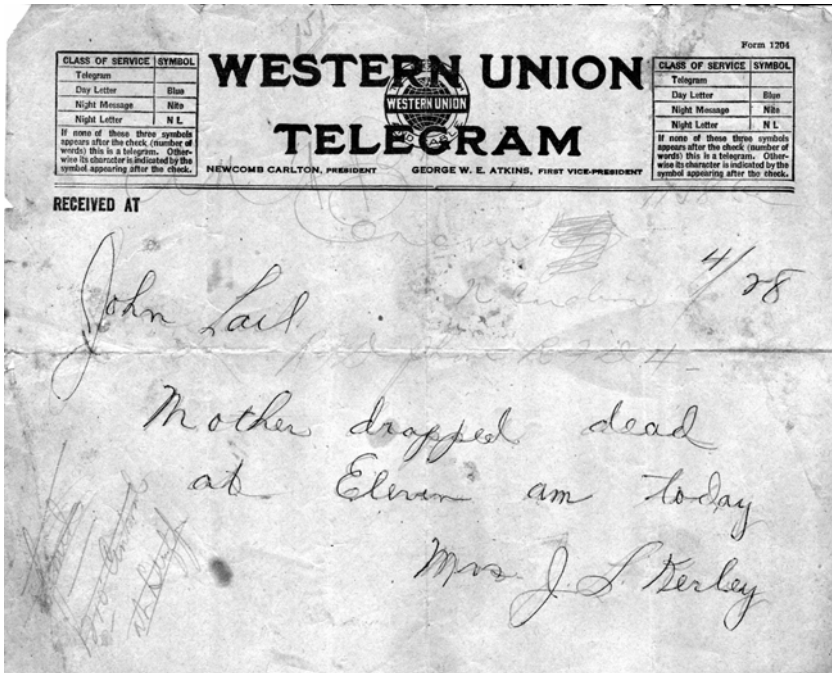 Form 1204
CLASS OF SERVICE SYMBOL
Telegram
Day Letter Blue
Night Message Nite
Night Letter N L
If none of these three symbols
appears after the check (number of
words) this is a telegram. Other-
wise its character is indicated by the
symbol appearing after the check.
WESTERN UNION
WESTERN UNION
TELEGRAM
NEWCOMB CARLTON, PRESIDENT GEORGE W. E. ATKINS, FIRST VICE-PRESIDENT
CLASS OF SERVICE SYMBOL
Telegram
Day Letter Blue
Night Message Nite
Night Letter N L
If none of these three symbols
appears after the check (number of
words) this is a telegram. Other-
wise its character is indicated by the
symbol appearing after the check.
RECEIVED AT
4/28
John Lail
Mother dropped dead
at Eleven am today
Mrs. J. L. Kerley